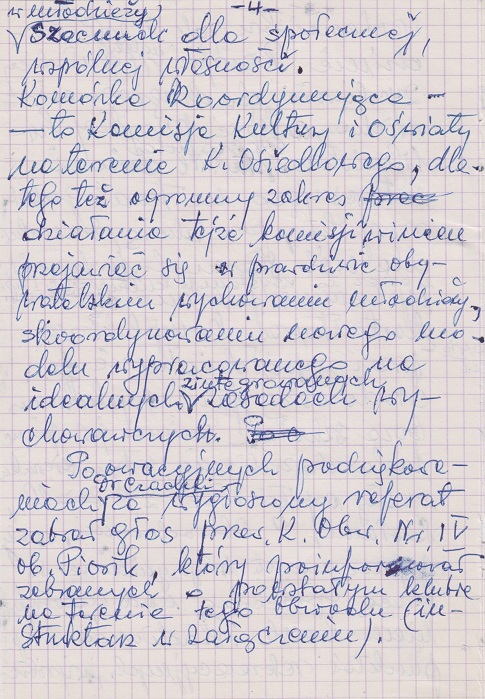 -4-
w młodzieży
√ Szacunek dla społecznej,
wspólnej własności.
Komórka Koordynująca -
- to Komisja Kultury i Oświaty
na terenie K. Osiedlowego, dla-
tego też ogromny zakres
działania tejże komisji winien
przejawiać się w prawdziwie oby-
watelskim wychowaniu młodzieży,
skoordynowaniu nowego mo-
delu wypracowanego na
zintegrowanych
idealnych √ zasadach wy-
chowawczych.
Po owacyjnych podziękowa-
niach za wygłoszony referat
zabrał głos przew. K. Obw. Nr IV
ob. Piorik, który poinformował
zebranych o powstałym klubie
na terenie tego obwodu (in-
struktaż w załączeniu).